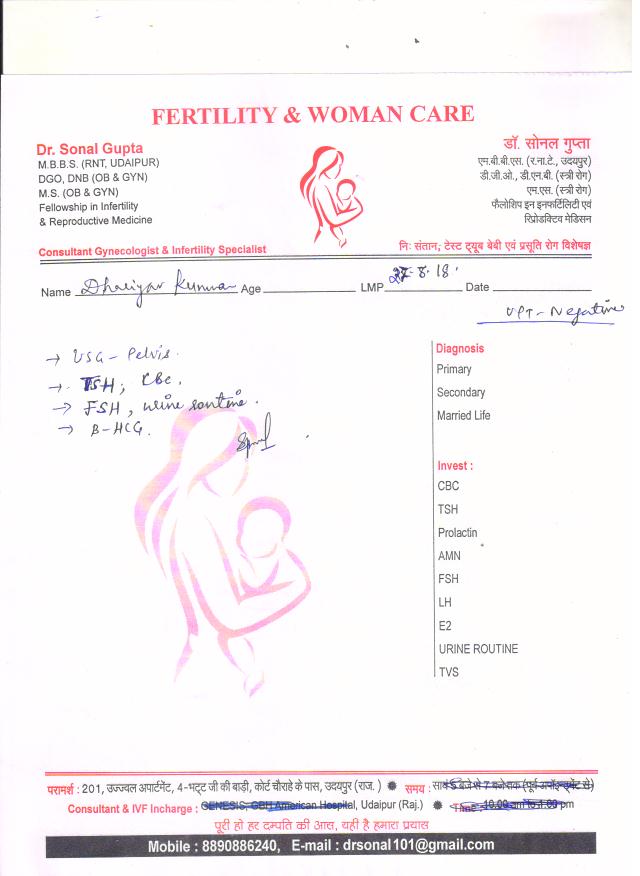 FERTILITY & WOMAN CARE
Dr. Sonal Gupta
M.B.B.S. (RNT, UDAIPUR)
DGO, DNB (OB & GYN)
M.S. (OB & GYN)
Fellowship in Infertility
& Reproductive Medicine
Consultant Gynecologist & Infertility Specialist
डॉ. सोनल गुप्ता
एम.बी.बी.एस. (र.ना.टे., उदयपुर)
डी.जी.ओ., डी.एन.बी. (स्त्री रोग)
एम.एस. (स्त्री रोग)
फैलोशिप इन इनफर्टिलिटी एवं
रिप्रोडक्टिव मेडिसन
निः संतान, टेस्ट ट्यूब बेबी एवं प्रसूति रोग विशेषज्ञ
Name Age LMP 27-8-18. Date
UPT - Negative
→ USG - Pelvis.
→ TSH; CBC.
→ FSH, urine routine.
→ B-HCG.
Diagnosis
Primary
Secondary
Married Life
Invest :
CBC
TSH
Prolactin
AMN
FSH
LH
E2
URINE ROUTINE
TVS
परामर्श : 201, उज्ज्वल अपार्टमेंट, 4-भट्ट जी की बाड़ी, कोर्ट चौराहे के पास, उदयपुर (राज.) समय : सायं 5 बजे से 7 बजे तक (पूर्व अपॉइन्टमेंट से)
Consultant & IVF Incharge : GENESIS, GBH American Hospital, Udaipur (Raj.) Time : 10.00 am to 1.00 pm
पूरी हो हर दम्पति की आस, यही है हमारा प्रयास
Mobile : 8890886240, E-mail : drsonal101@gmail.com